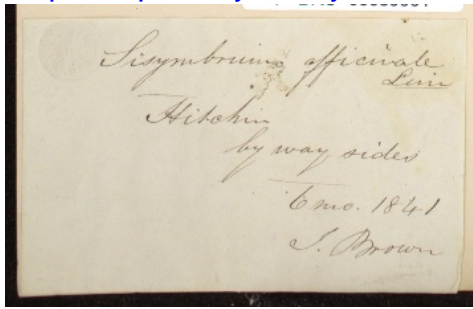 Sisymbrium officinale
Linn
Hitchin
by way sides
6 mo. 1841
J. Brown